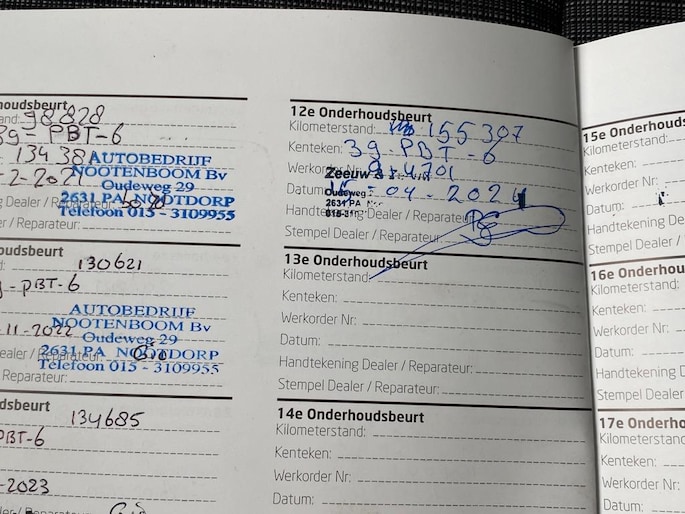 houdsbeurt
and: 98828
39-PBT-6
13438
-2-202
AUTOBEDRIJF
NOOTENBOOM Bv
Oudeweg 29
2631 PA NOOTDORP
Telefoon 015 - 3109955
g Dealer / Reparateur:
/ Reparateur:
oudsbeurt
130621
-PBT-6
-11-2022
AUTOBEDRIJF
NOOTENBOOM Bv
Oudeweg 29
2631 PA NOOTDORP
Telefoon 015 - 3109955
ealer / Reparateur:
Reparateur:
dsbeurt
134685
PBT-6
-2023
12e Onderhoudsbeurt
Kilometerstand: 155307
Kenteken: 39-PBT-6
Werkorder Nr:
Zeeuw &
Oudeweg
2631 PA
Datum: -04-2024
Handtekening Dealer / Reparateur:
Stempel Dealer / Reparateur:
13e Onderhoudsbeurt
Kilometerstand:
Kenteken:
Werkorder Nr:
Datum:
Handtekening Dealer / Reparateur:
Stempel Dealer / Reparateur:
14e Onderhoudsbeurt
Kilometerstand:
Kenteken:
Werkorder Nr:
Datum:
15e Onderhouds
Kilometerstand:
Kenteken:
Werkorder Nr:
Datum:
Handtekening Deale
Stempel Dealer /
16e Onderhou
Kilometerstand:
Kenteken:
Werkorder Nr:
Datum:
Handtekening D
Stempel Dealer
17e Onderho
Kilometerstand
Kenteken:
Werkorder N
Datum: